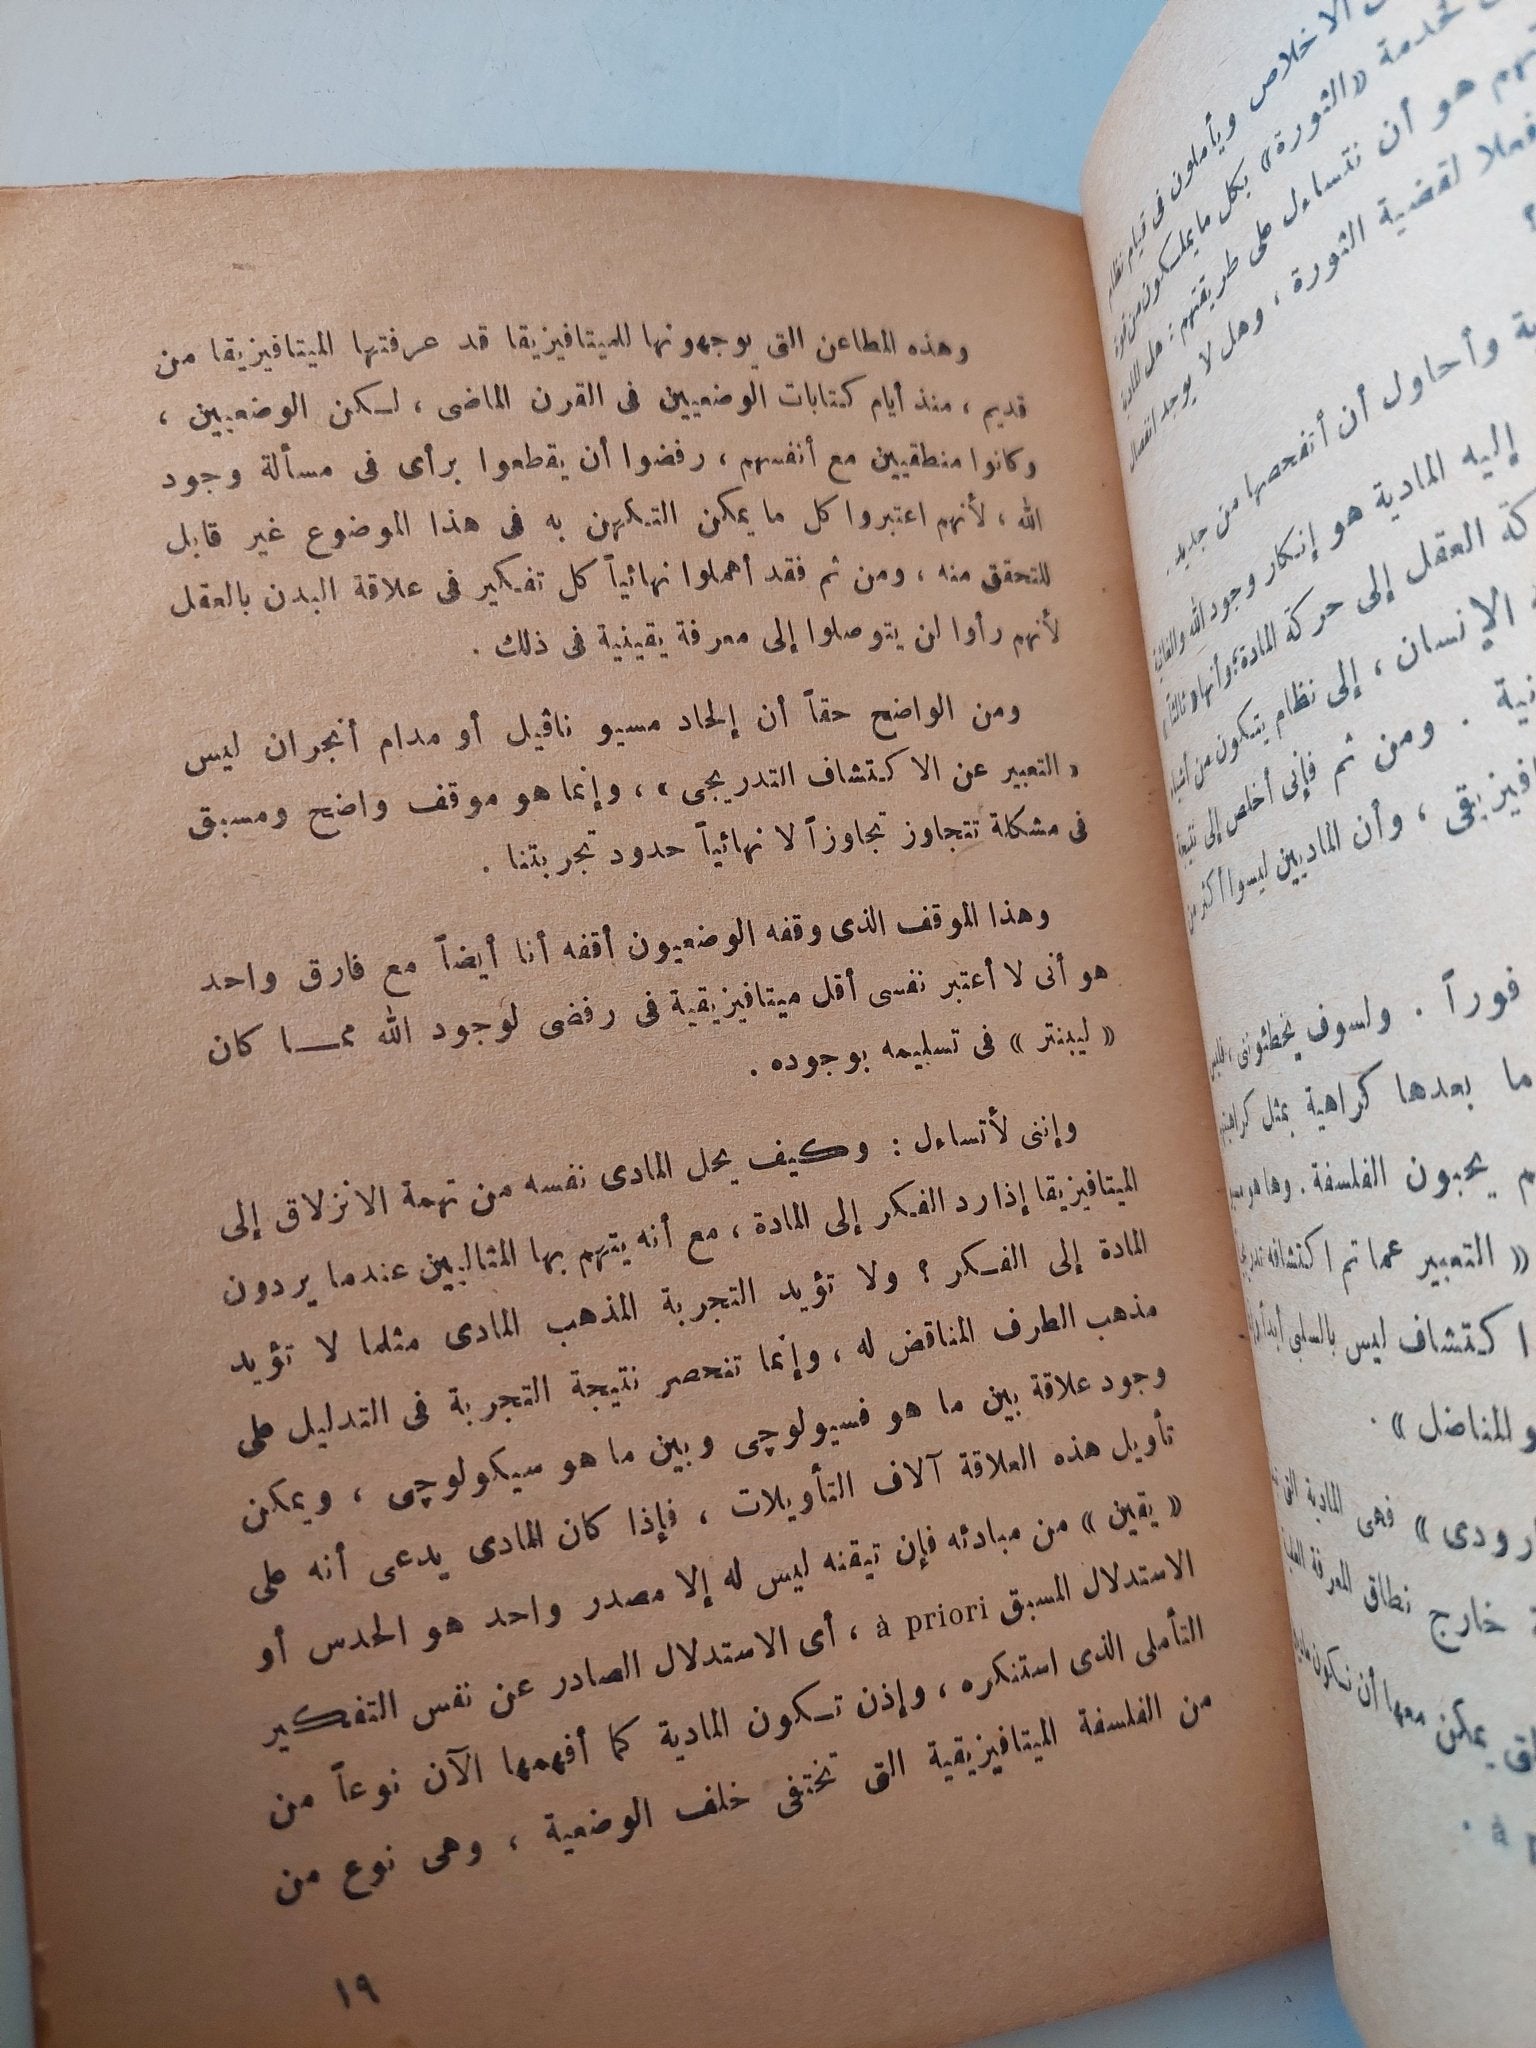 الاخلاص ويأملون فى قيام نظام
لخدمة «الثورة» بكل ما يملكون من قوة
هو أن نتساءل على طريقتهم : هل المادية
فعلا لقضية الثورة ، وهل لا يوجد انفصال
؟
وأحاول أن أتفحصها من جديد .
إليه المادية هو إنكار وجود الله والغائية
العقل إلى حركة المادة؛ وأنها «ثالثاً»
الإنسان ، إلى نظام يتكون من أشياء
. ومن ثم فإنى أخلص إلى نتيجة
، وأن الماديين ليسوا أكثر من
فوراً . ولسوف يخطئوننى ، فليس
ما بعدها كراهية بمثل كراهيتهم
يحبون الفلسفة . وها هو مسيو
« التعبير عما تم اكتشافه
اكتشاف ليس بالسلبى أبداً
المناضل » .
» فهى المادية التى
خارج نطاق المعرفة
يمكن معها أن نكون
à
وهذه المطاعن التى يوجهونها للميتافيزيقا قد عرفتها الميتافيزيقا من
قديم ، منذ أيام كتابات الوضعيين فى القرن الماضى ، لـكن الوضعيين ،
وكانوا منطقيين مع أنفسهم ، رفضوا أن يقطعوا برأى فى مسألة وجود
الله ، لأنهم اعتبروا كل ما يمكن التكهن به فى هذا الموضوع غير قابل
للتحقق منه ، ومن ثم فقد أهملوا نهائياً كل تفكير فى علاقة البدن بالعقل
لأنهم رأوا لن يتوصلوا إلى معرفة يقينية فى ذلك .
ومن الواضح حقاً أن إلحاد مسيو ناڤيل أو مدام أنجران ليس
« التعبير عن الاكتشاف التدريجى » ، وإنما هو موقف واضح ومسبق
فى مشكلة تتجاوز تجاوزاً لا نهائياً حدود تجربتنا .
وهذا الموقف الذى وقفه الوضعيون أقفه أنا أيضاً مع فارق واحد
هو أنى لا أعتبر نفسى أقل ميتافيزيقية فى رفضى لوجود الله ممـــا كان
« ليبنتر » فى تسليمه بوجوده .
وإننى لأتساءل : وكيف يحل المادى نفسه من تهمة الانزلاق إلى
الميتافيزيقا إذا رد الفكر إلى المادة ، مع أنه يتهم بها المثاليين عندما يردون
المادة إلى الفـكر ؟ ولا تؤيد التجربة المذهب المادى مثلما لا تؤيد
مذهب الطرف المناقض له ، وإنما تنحصر نتيجة التجربة فى التدليل على
وجود علاقة بين ما هو فسيولوچى وبين ما هو سيكولوچى ، ويمكن
تأويل هذه العلاقة آلاف التأويلات ، فإذا كان المادى يدعى أنه على
« يقين » من مبادئه فإن تيقنه ليس له إلا مصدر واحد هو الحدس أو
الاستدلال المسبق à priori ، أى الاستدلال الصادر عن نفس التفكير
التأملى الذى استنكره ، وإذن تـكون المادية كما أفهمها الآن نوعاً من
من الفلسفة الميتافيزيقية التى تختفى خلف الوضعية ، وهى نوع من
١٩